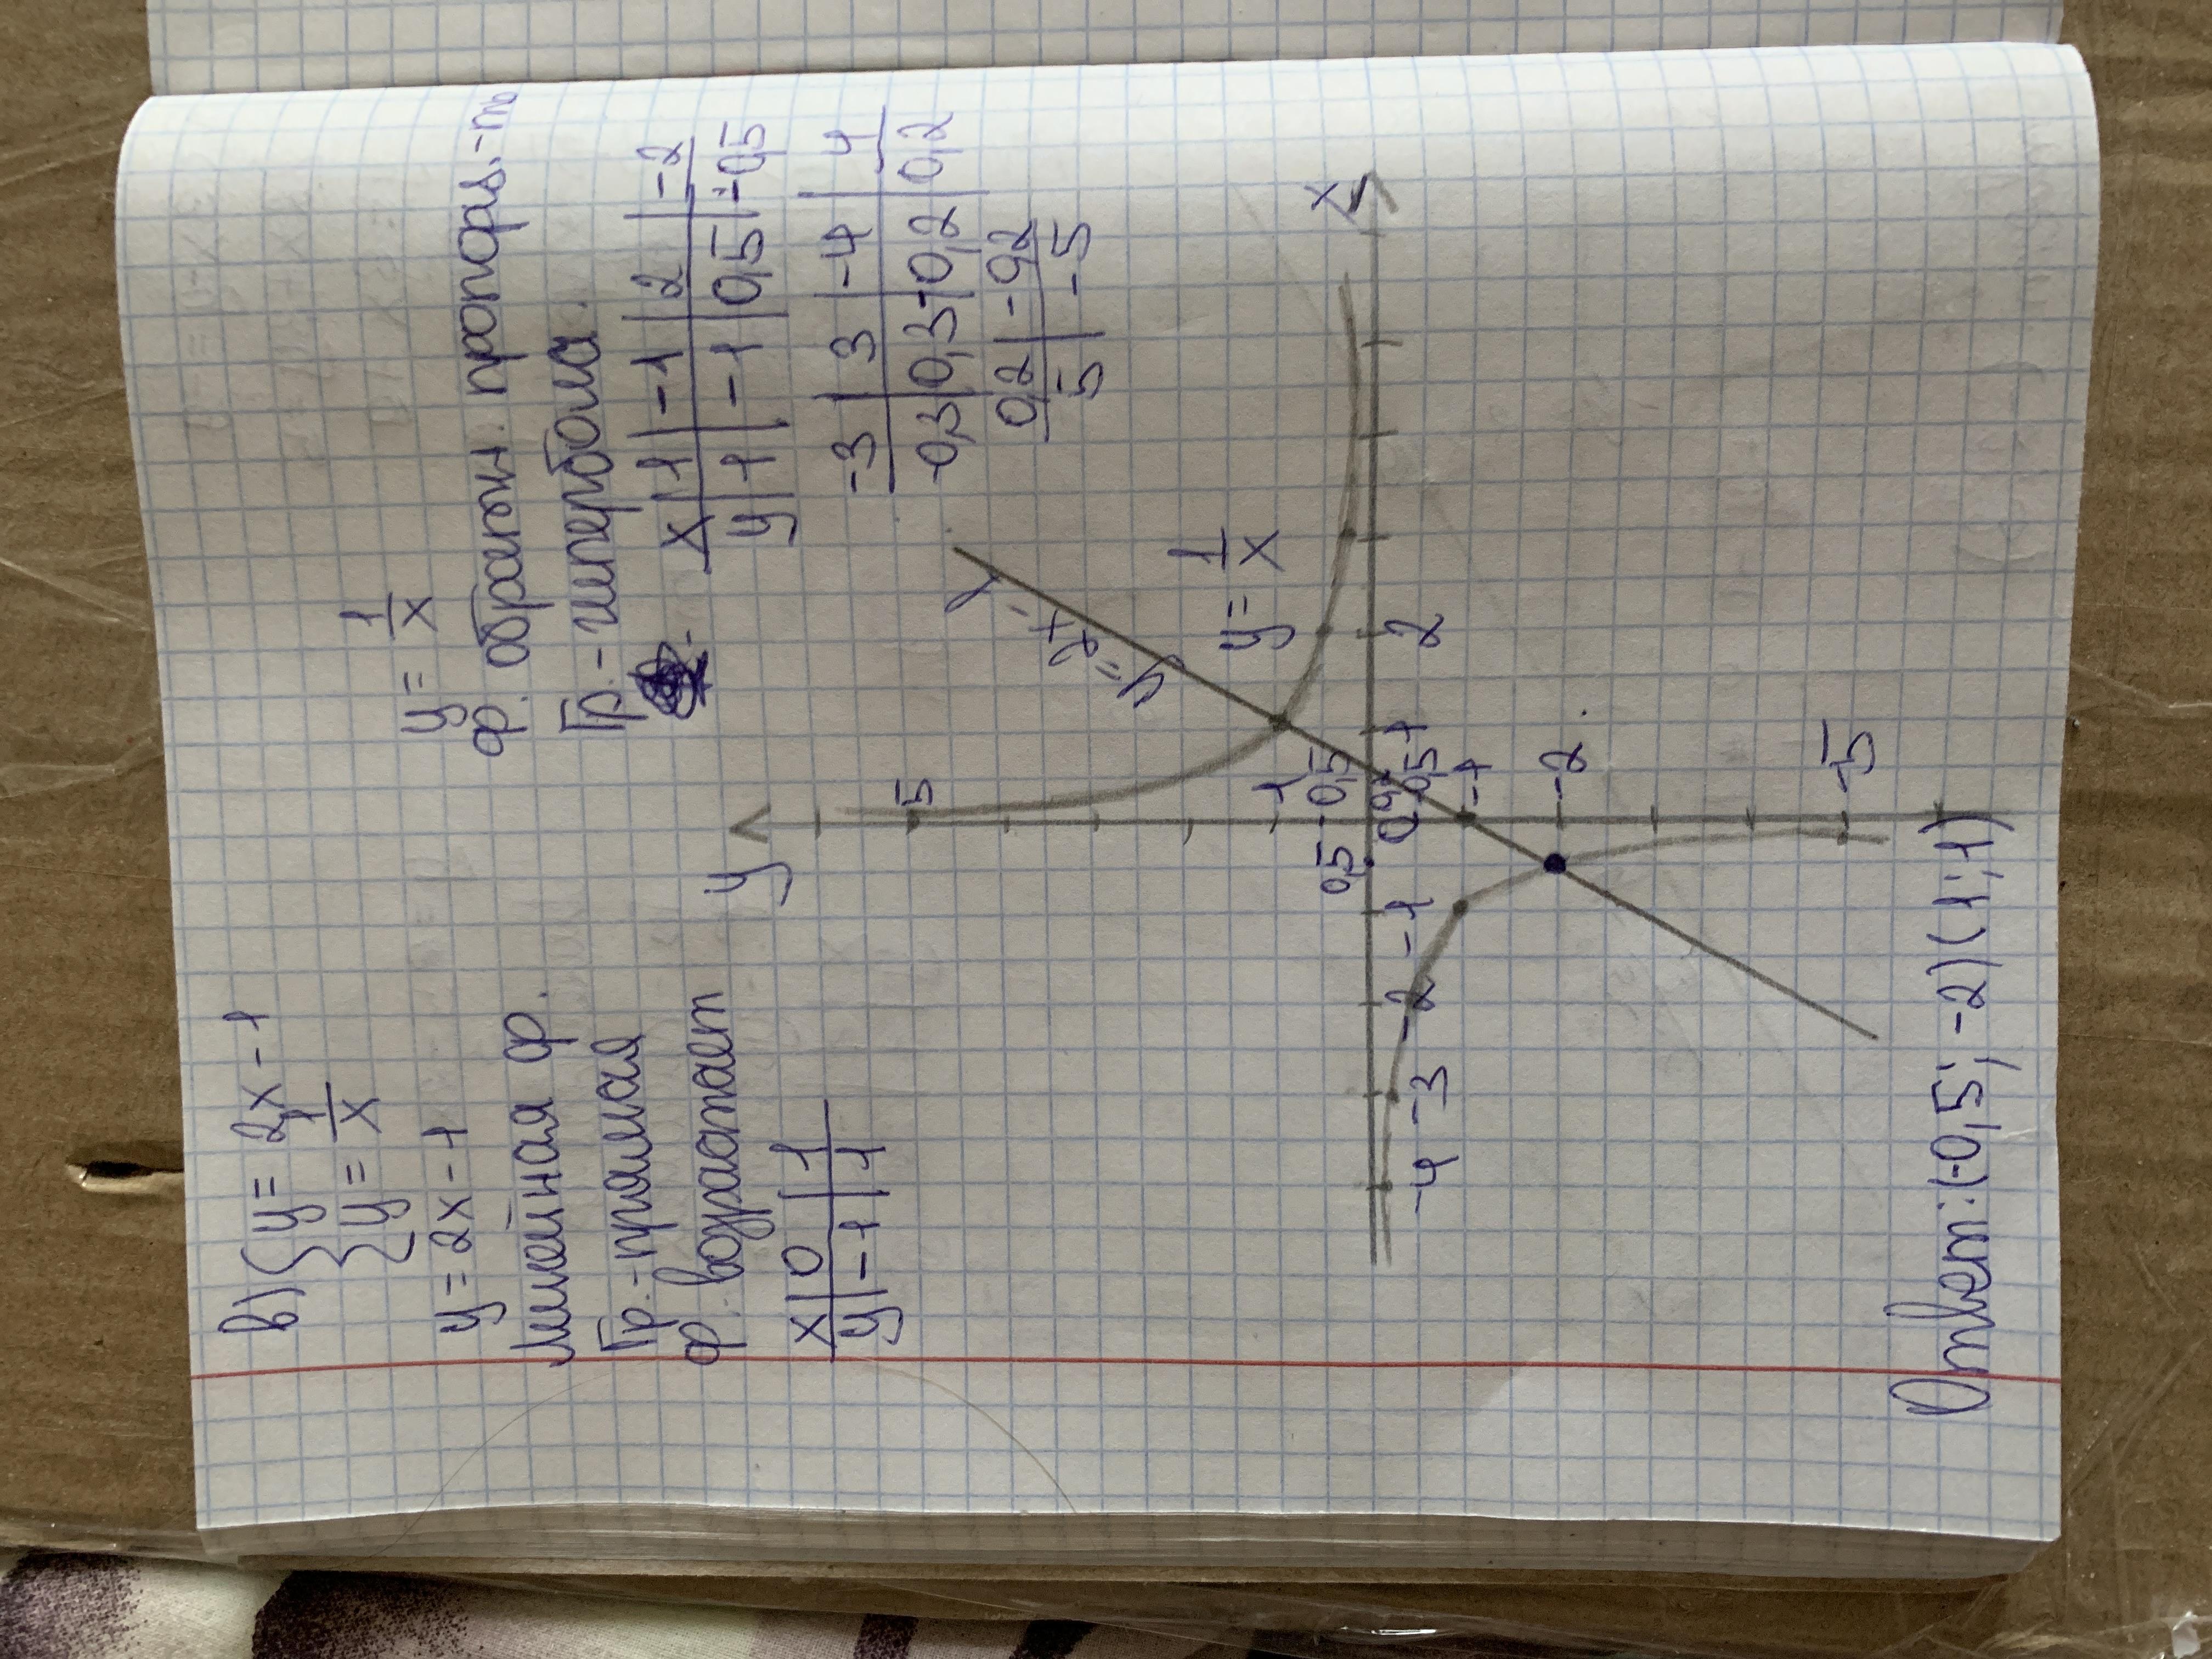 в) { y = 2x - 1
{ y = 1/x
y = 2x - 1
линейная ф.
Гр. - прямая
ф. возрастает
x | 0 | 1
y | -1 | 1
y = 1/x
ф. обратн. пропорц.-ти
Гр. - гипербола.
x | 1 | -1 | 2 | -2
y | 1 | -1 | 0,5 | -0,5
-3 | 3 | -4 | 4
-0,3 | 0,3 | -0,2 | 0,2
0,2 | -0,2
5 | -5
y
5
y = 2x - 1
y = 1/x
1
0,5
-0,5
x
-4 -3 -2 -1
1
2
0,5
-1
-2
-5
Ответ: (-0,5; -2) (1; 1)